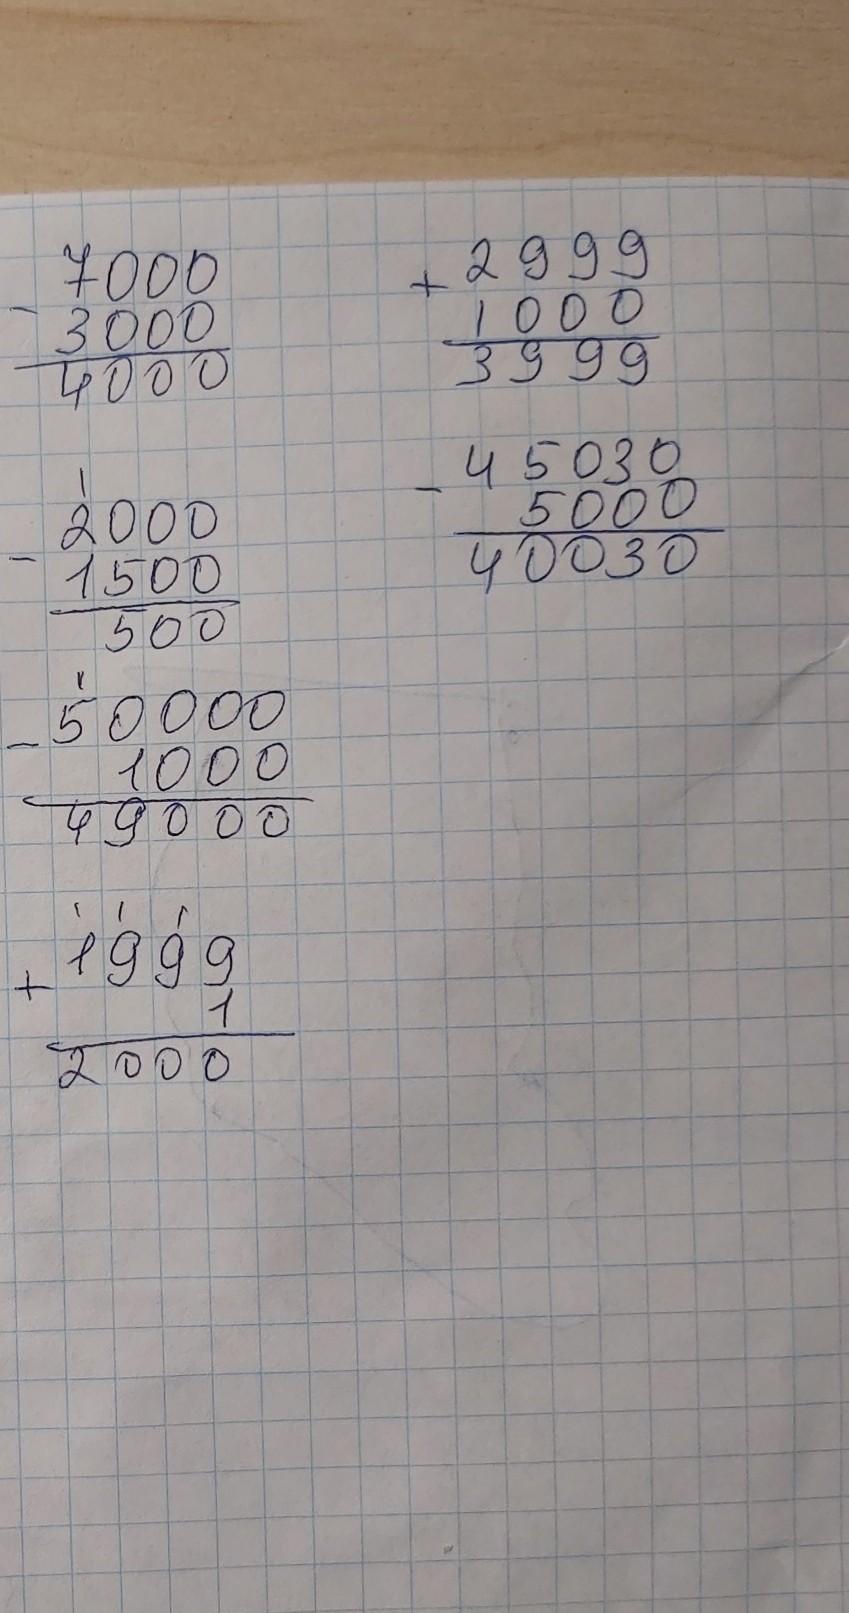 - 7000
3000
4000
1
- 2000
1500
500
1
- 50000
1000
49000
1 1 1
+ 1999
1
2000
+ 2999
1000
3999
- 45030
5000
40030